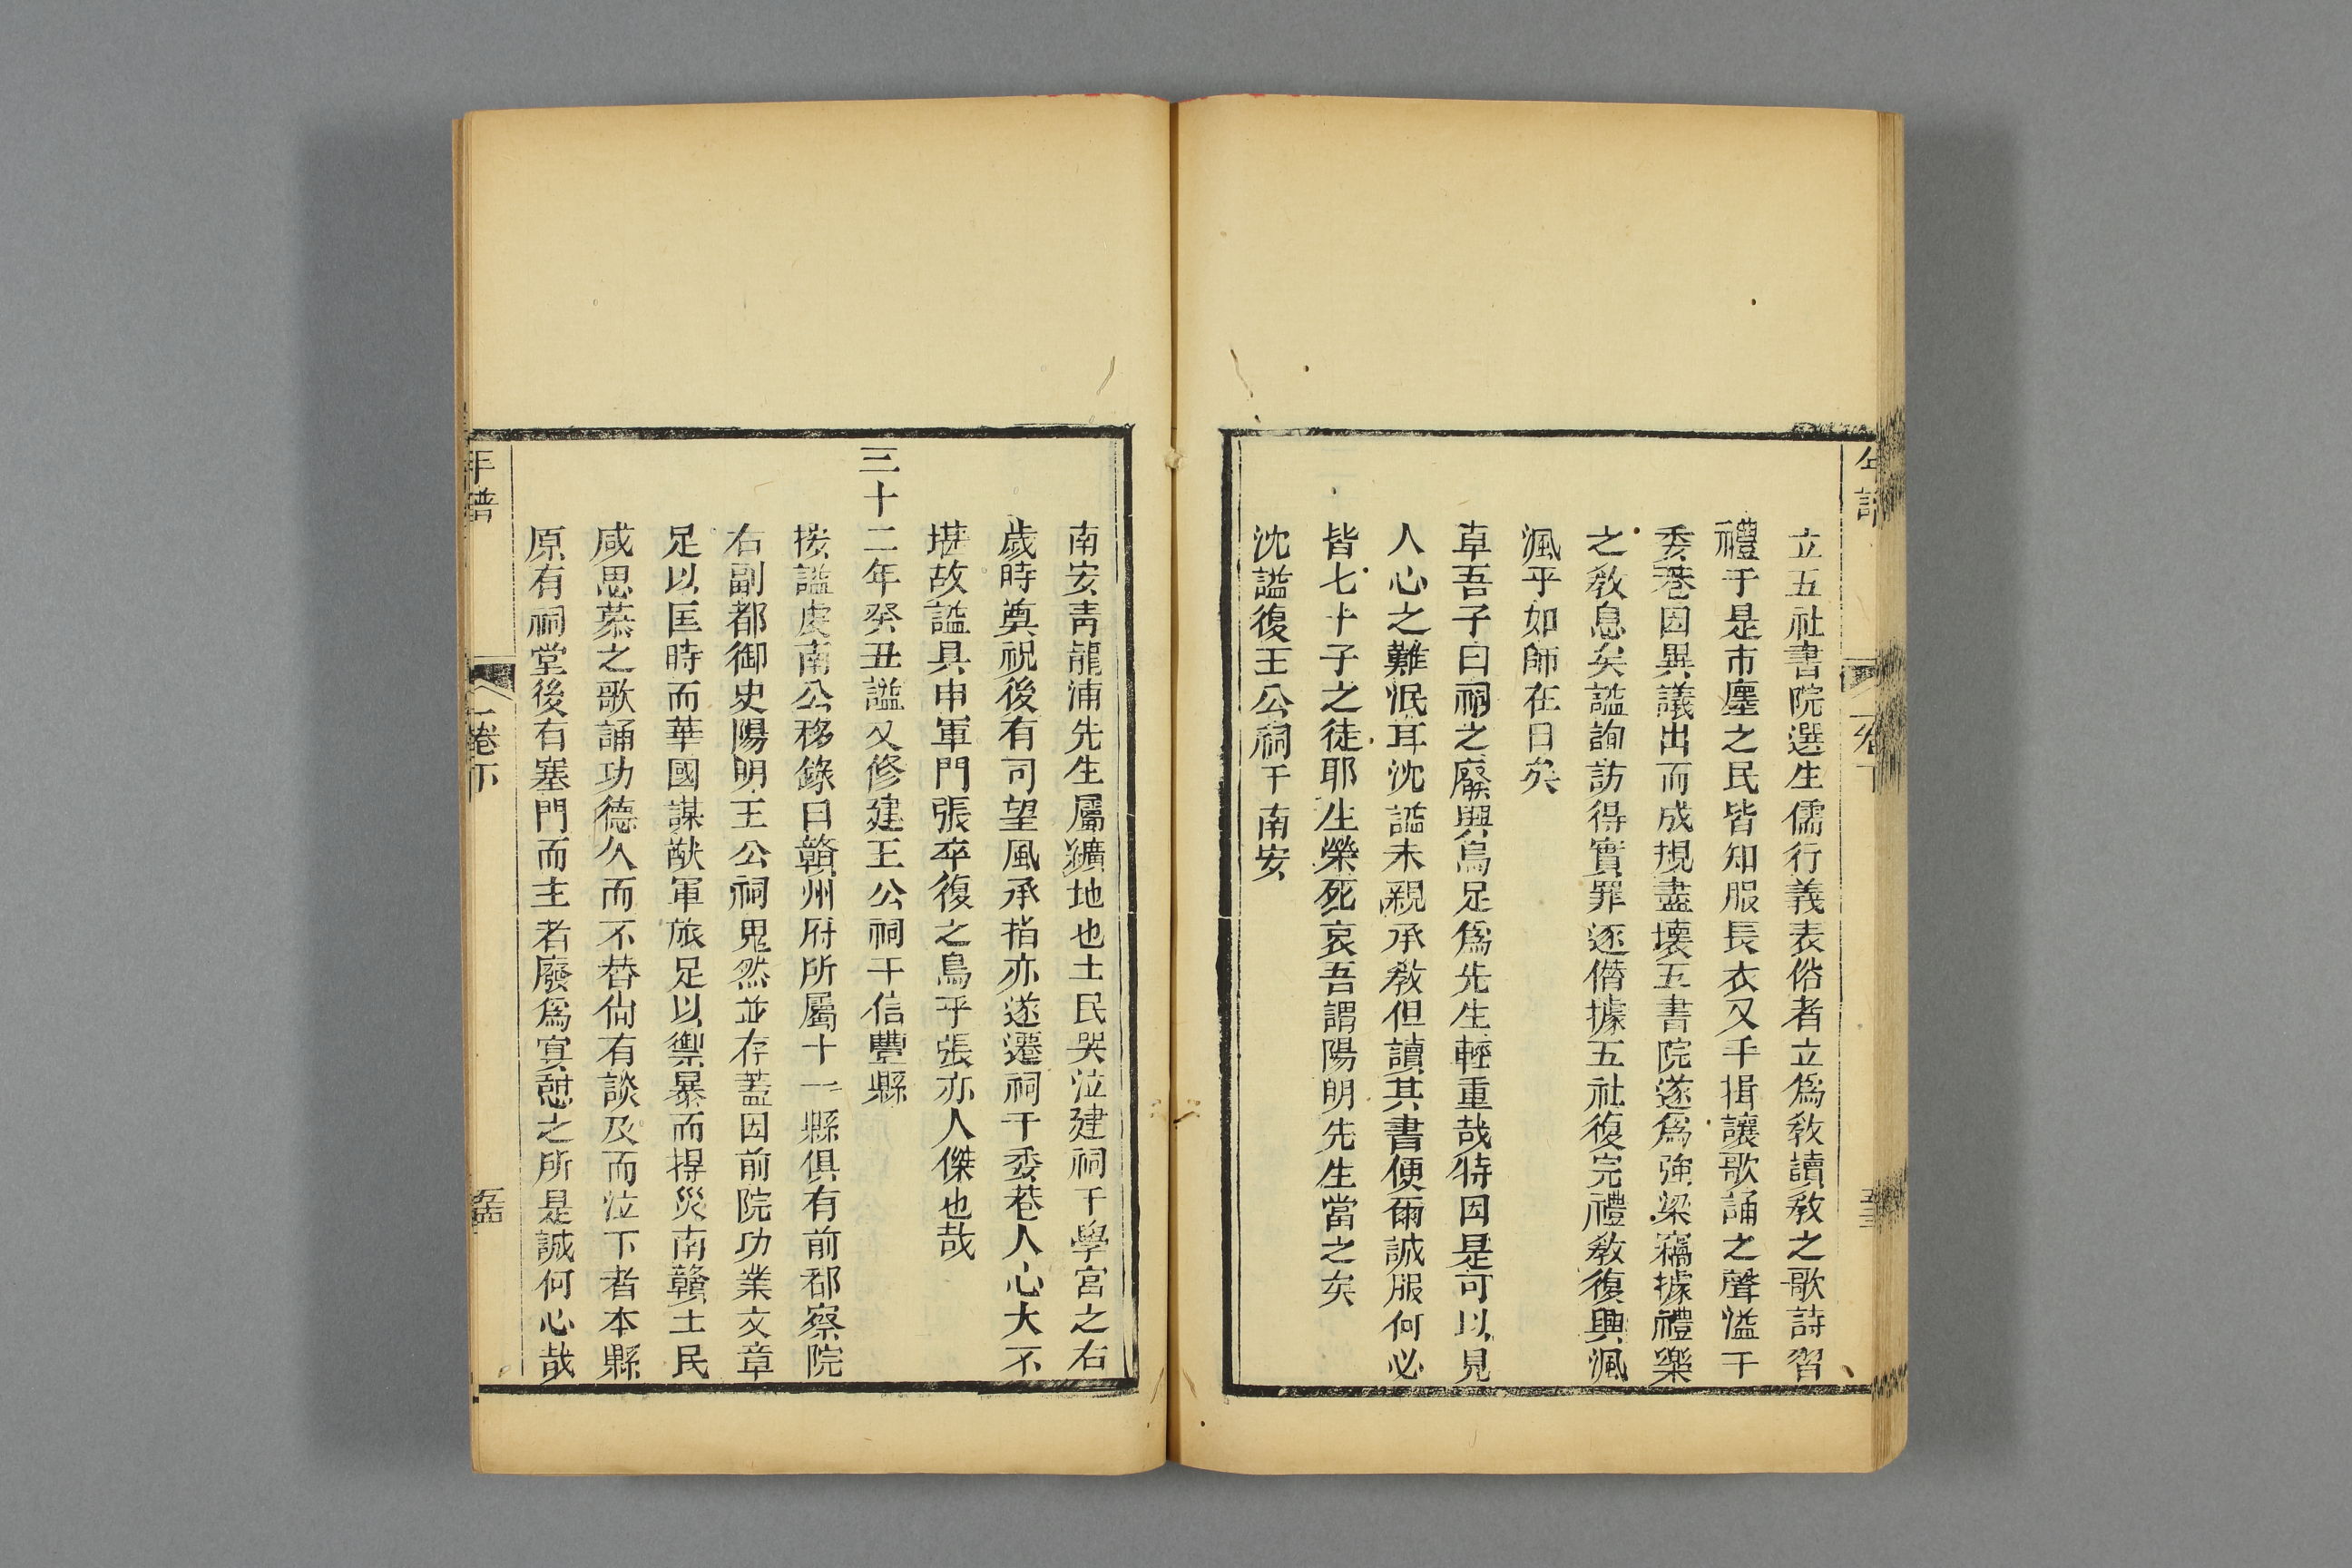 年譜
卷下
五十三
立五社書院選生儒行義表俗者立爲敎讀敎之歌詩習
禮于是市廛之民皆知服長衣叉手揖讓歌誦之聲溢于
委巷因異議出而成規盡壞五書院遂爲強梁竊據禮樂
之敎息矣謐詢訪得實罪逐僭據五社復完禮敎復興渢
渢乎如師在日矣
草吾子曰祠之廢興烏足爲先生輕重哉特因是可以見
人心之難泯耳沈謐未親承敎但讀其書便爾誠服何必
皆七十子之徒耶生榮死哀吾謂陽明先生當之矣
沈謐復王公祠于南安
南安靑龍浦先生屬纊地也士民哭泣建祠于學宮之右
歲時奠祝後有司望風承指亦遂遷祠于委巷人心大不
堪故謐具申軍門張卒復之烏乎張亦人傑也哉
三十二年癸丑謐又修建王公祠于信豐縣
按謐虔南公移錄曰贛州府所屬十一縣俱有前都察院
右副都御史陽明王公祠巍然並存蓋因前院功業文章
足以匡時而華國謀猷軍旅足以禦暴而捍災南贛士民
咸思慕之歌誦功德久而不替尙有談及而泣下者本縣
原有祠堂後有塞門而主者廢爲寘憇之所是誠何心哉
年譜
卷下
五十四